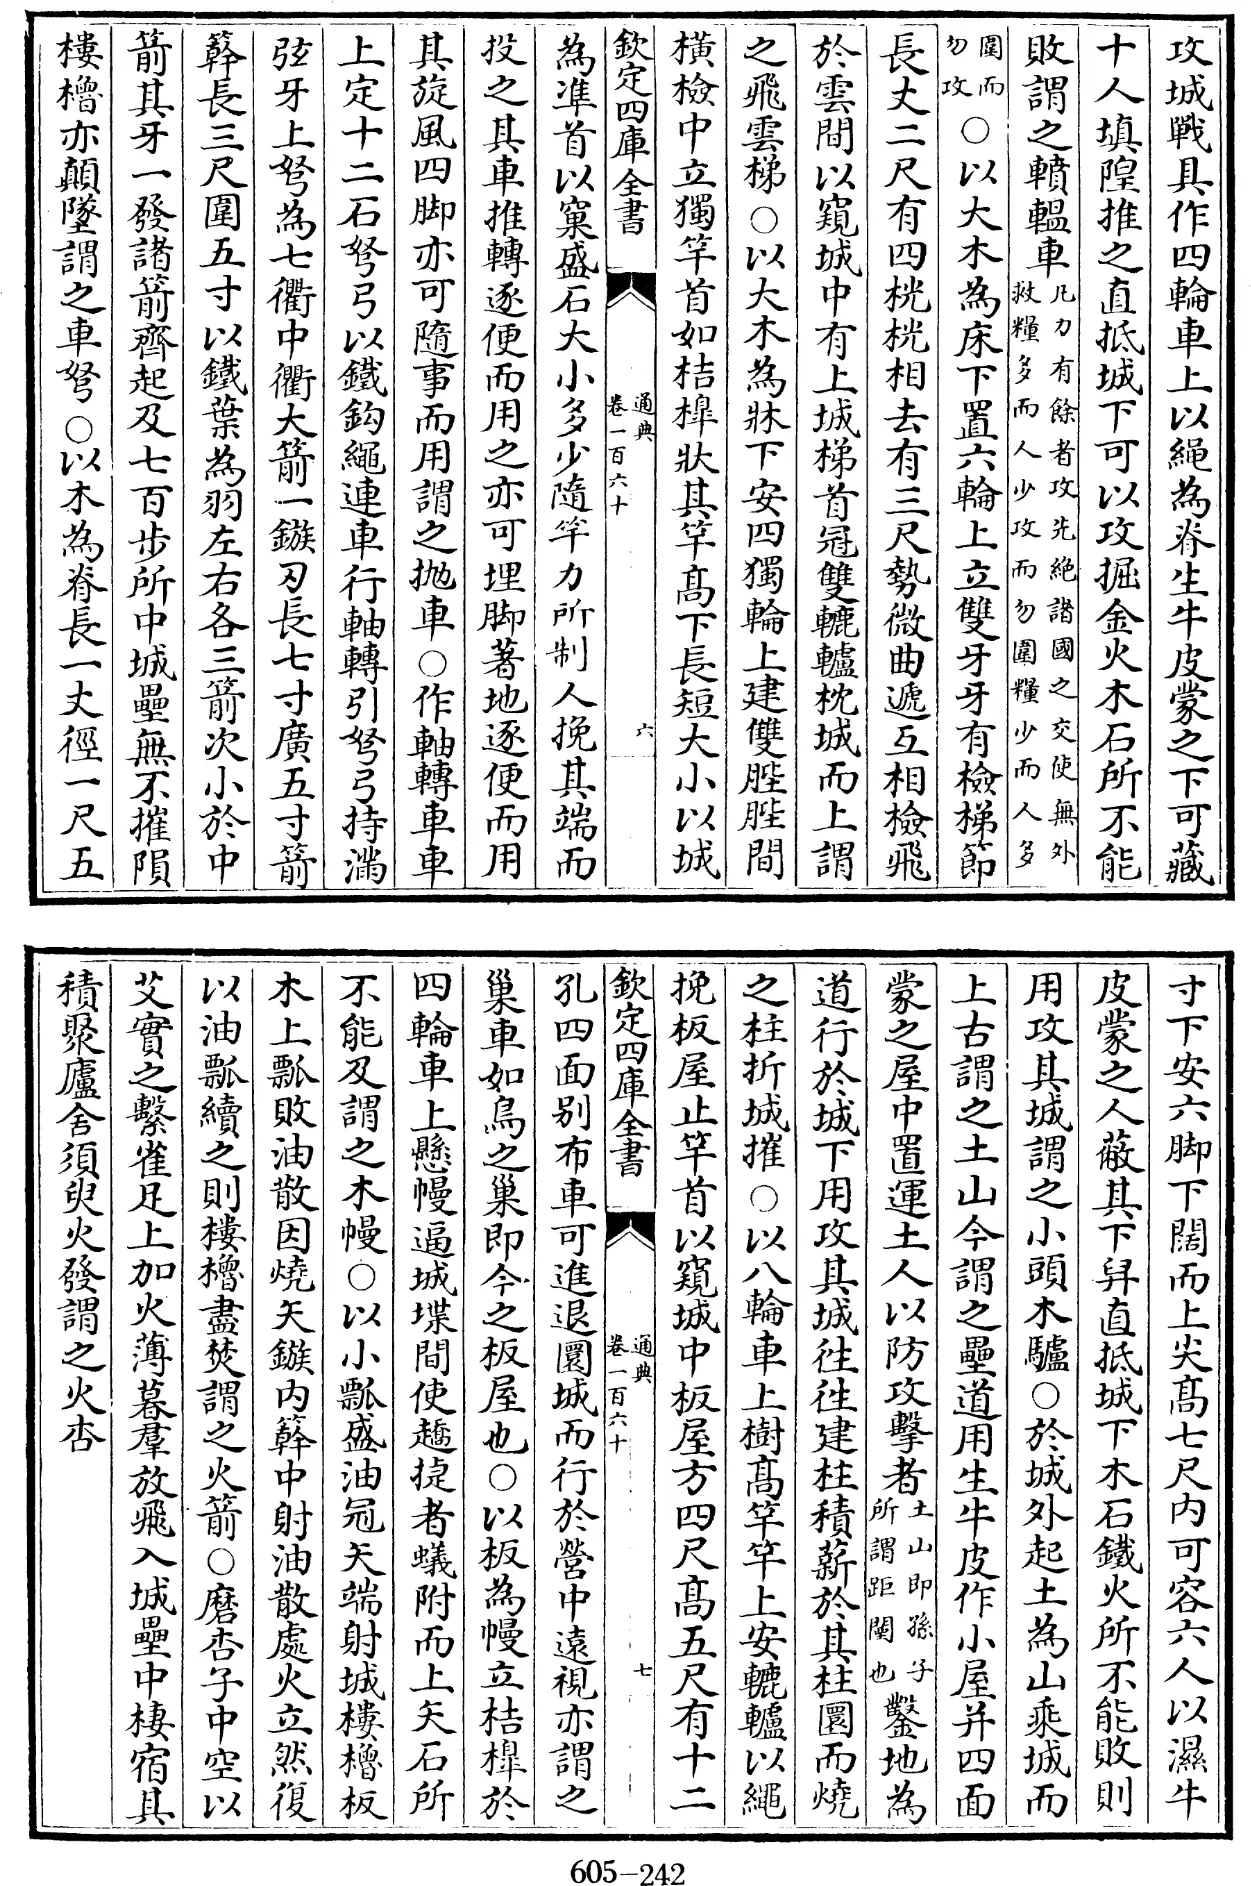 攻城戰具作四輪車上以繩為脊生牛皮蒙之下可藏
十人填隍推之直抵城下可以攻掘金火木石所不能
敗謂之轒轀車凡力有餘者攻先絶諸國之交使無外
救糧多而人少攻而勿圍糧少而人多
圍而
勿攻○以大木為床下置六輪上立雙牙牙有檢梯節
長丈二尺有四桄桄相去有三尺勢微曲遞互相檢飛
於雲間以窺城中有上城梯首冠雙轆轤枕城而上謂
之飛雲梯○以大木為牀下安四獨輪上建雙陛陛間
橫檢中立獨竿首如桔槹狀其竿高下長短大小以城
欽定四庫全書
通典
卷一百六十
六
為準首以窠盛石大小多少隨竿力所制人挽其端而
投之其車推轉逐便而用之亦可埋脚著地逐便而用
其旋風四脚亦可隨事而用謂之抛車○作軸轉車車
上定十二石弩弓以鐵鈎繩連車行軸轉引弩弓持滿
弦牙上弩為七衢中衢大箭一鏃刃長七寸廣五寸箭
簳長三尺圍五寸以鐵葉為羽左右各三箭次小於中
箭其牙一發諸箭齊起及七百步所中城壘無不摧隕
樓櫓亦顛墜謂之車弩○以木為脊長一丈徑一尺五
寸下安六脚下闊而上尖高七尺内可容六人以濕牛
皮蒙之人蔽其下舁直抵城下木石鐵火所不能敗則
用攻其城謂之小頭木驢○於城外起土為山乘城而
上古謂之土山今謂之壘道用生牛皮作小屋并四面
蒙之屋中置運土人以防攻擊者土山即孫子
所謂距闉也鑿地為
道行於城下用攻其城往往建柱積薪於其柱圜而燒
之柱折城摧○以八輪車上樹高竿竿上安轆轤以繩
挽板屋止竿首以窺城中板屋方四尺高五尺有十二
欽定四庫全書
通典
卷一百六十
七
孔四面别布車可進退圜城而行於營中遠視亦謂之
巢車如鳥之巢即今之板屋也○以板為幔立桔槹於
四輪車上懸幔逼城堞間使趫捷者蟻附而上矢石所
不能及謂之木幔○以小瓢盛油冠矢端射城樓櫓板
木上瓢敗油散因燒矢鏃内簳中射油散處火立然復
以油瓢續之則樓櫓盡焚謂之火箭○磨杏子中空以
艾實之繫雀足上加火薄暮羣放飛入城壘中棲宿其
積聚廬舍須臾火發謂之火杏
605-242